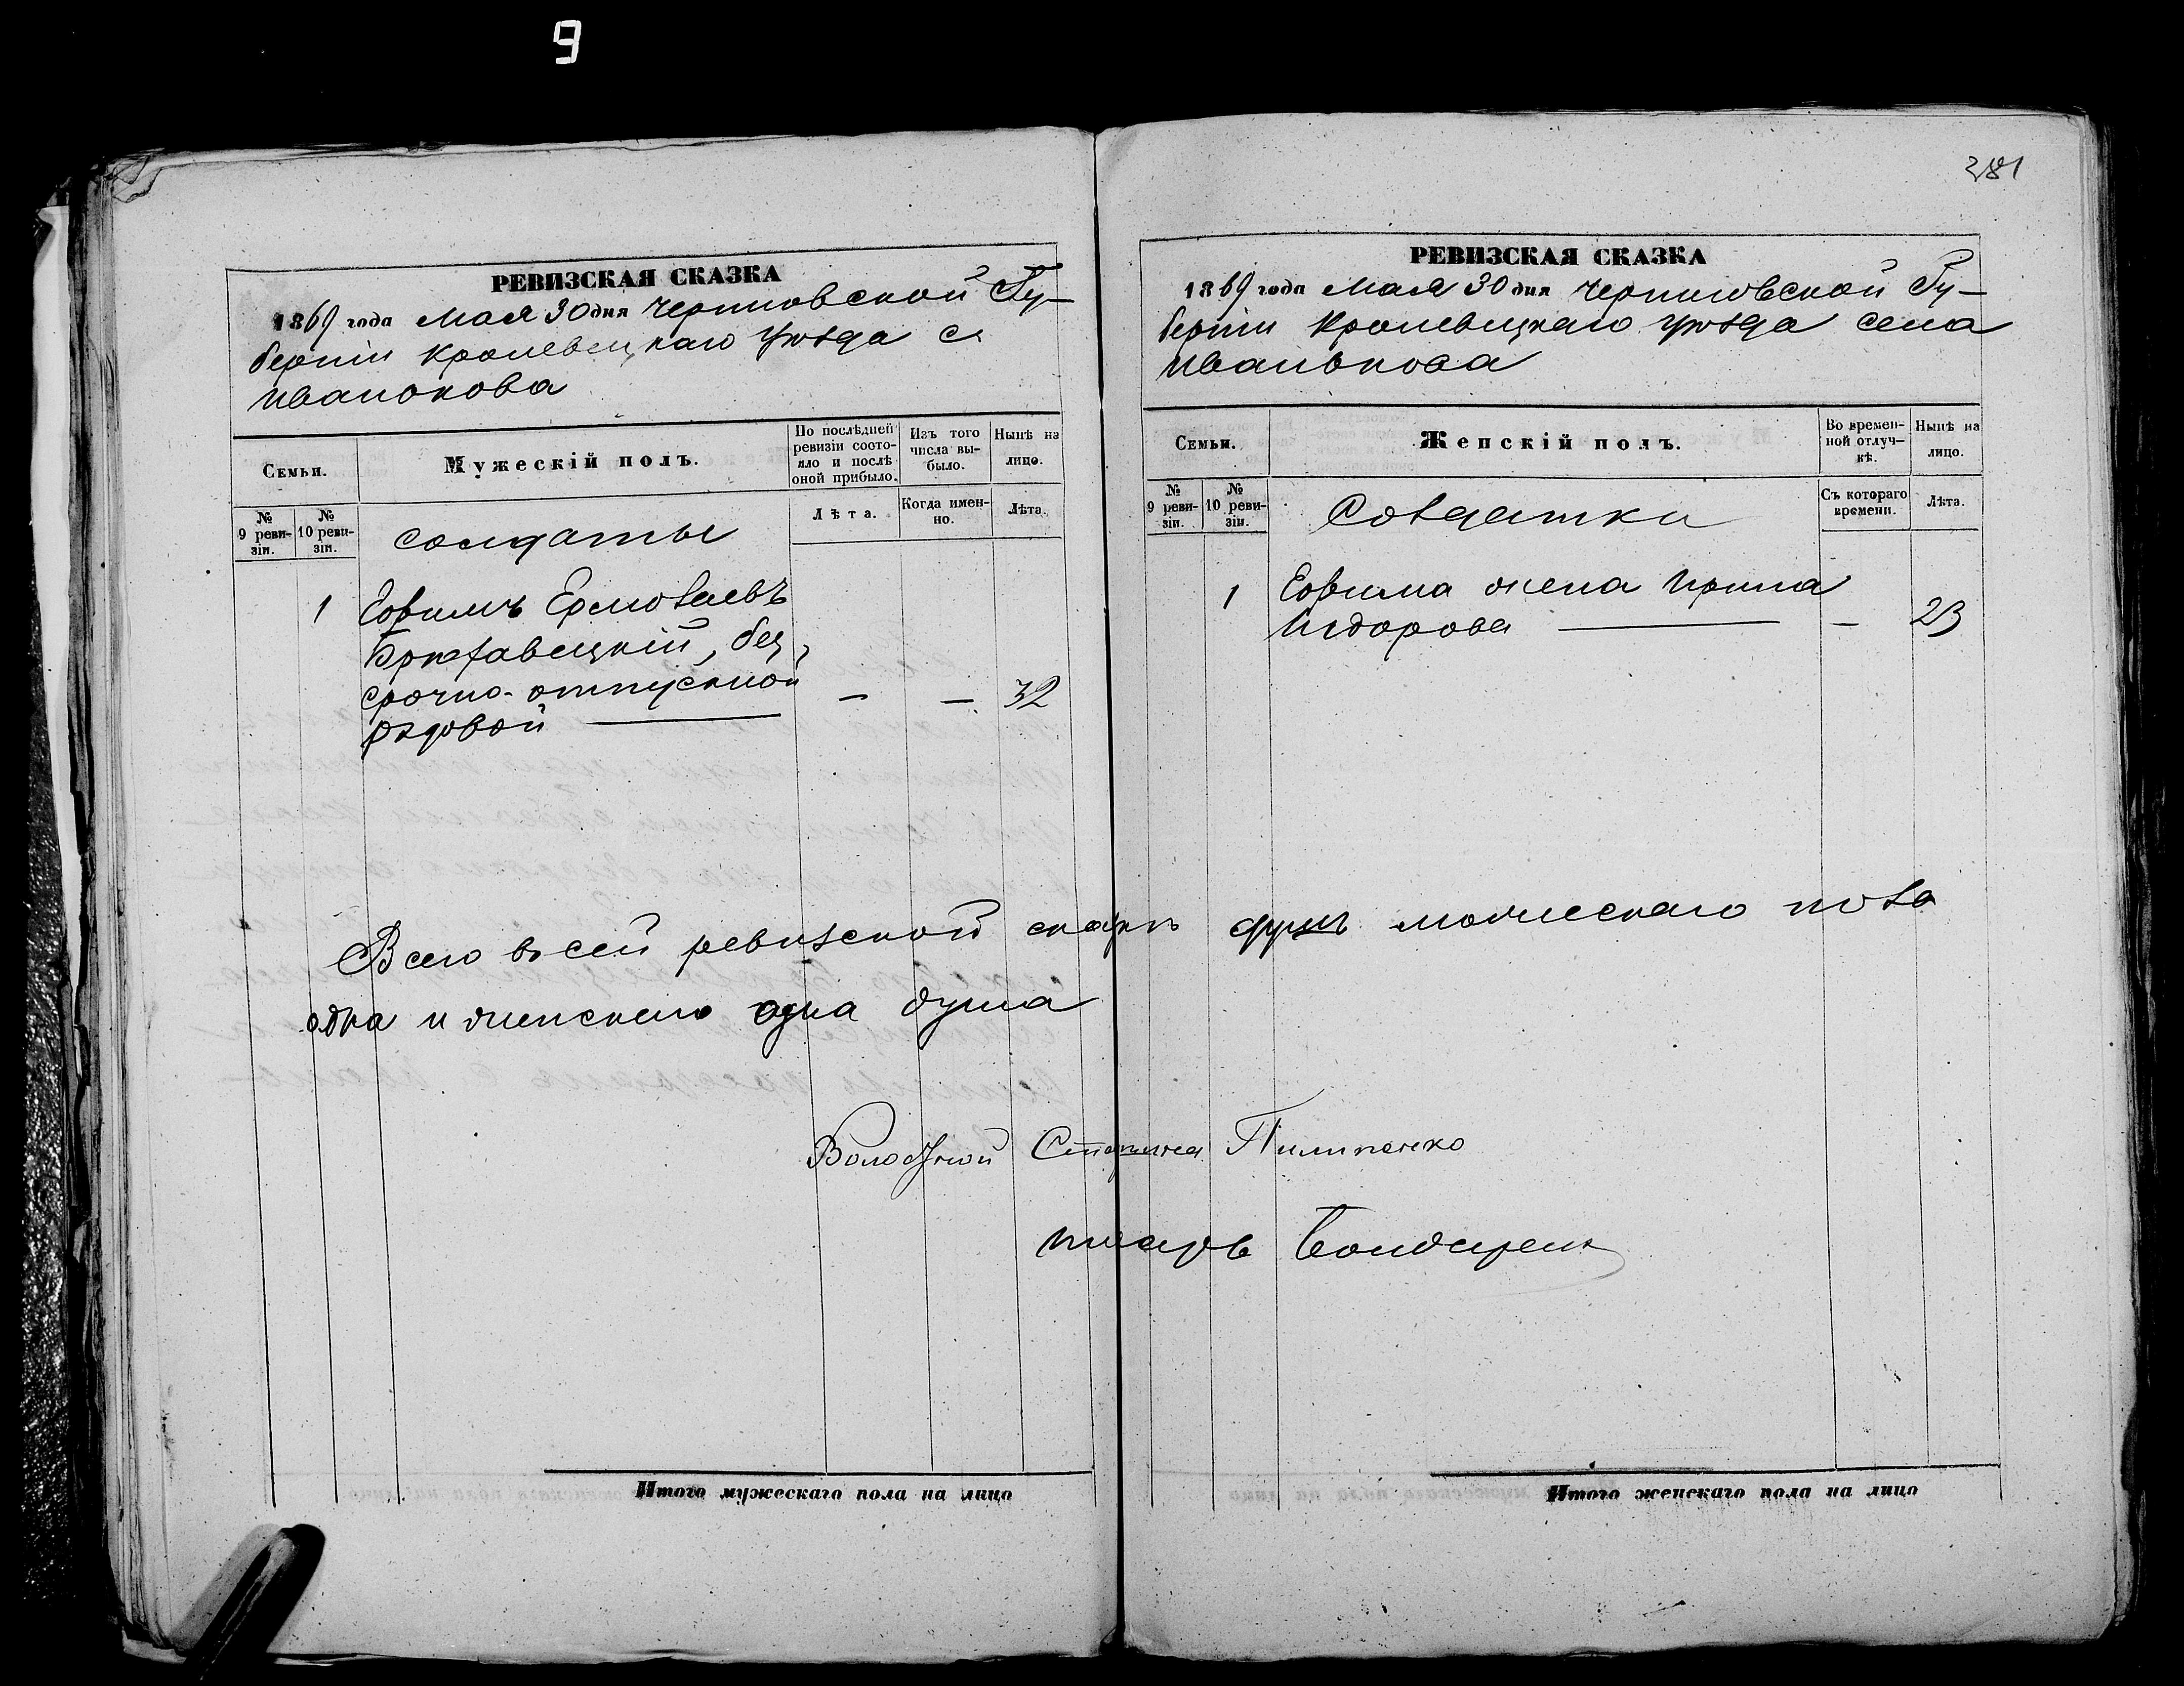 9
281
РЕВИЗСКАЯ СКАЗКА
1869 года Мая 30 дня Черниговской Гу-
берніи Кролевецкаго уѣзда с.
Иванькова
Семьи.
Мужескій полъ.
По послѣдней ревизіи состо-яло и послѣ оной прибыло.
Изъ того числа вы-было.
Нынѣ на лицо.
№ 9 реви-зіи.
№ 10 реви-зіи.
солдаты
Лѣта.
Когда имен-но.
Лѣта.
1 Ефимъ Ермолаевъ
Брюховецкій, без
срочно-отпускной — — 32
рядовой
РЕВИЗСКАЯ СКАЗКА
1869 года Мая 30 дня Черниговской Гу-
берніи Кролевецкаго уѣзда села
Иванькова
Семьи.
Женскій полъ.
Во времен-ной отлуч-кѣ.
Нынѣ на лицо.
№ 9 реви-зіи.
№ 10 реви-зіи.
Солдатки
Съ котораго времени.
Лѣта.
1 Ефима жена Ирина
Сидорова — 23
Всего в сей ревизской сказкѣ душъ мужескаго пола
одна и женскаго одна душа
Волостной Старшина Пилипенко
писарь Бондаренко
Итого мужескаго пола на лицо
Итого женскаго пола на лицо